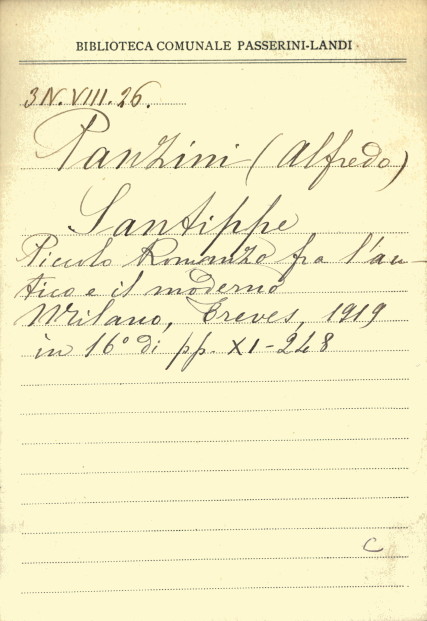 BIBLIOTECA COMUNALE PASSERINI-LANDI
3N.VIII.26.
Panzini (Alfredo)
Santippe
Piccolo Romanzo fra l'an-
tico e il moderno
Milano, Treves, 1919
in 16º di pp. XI-248
C